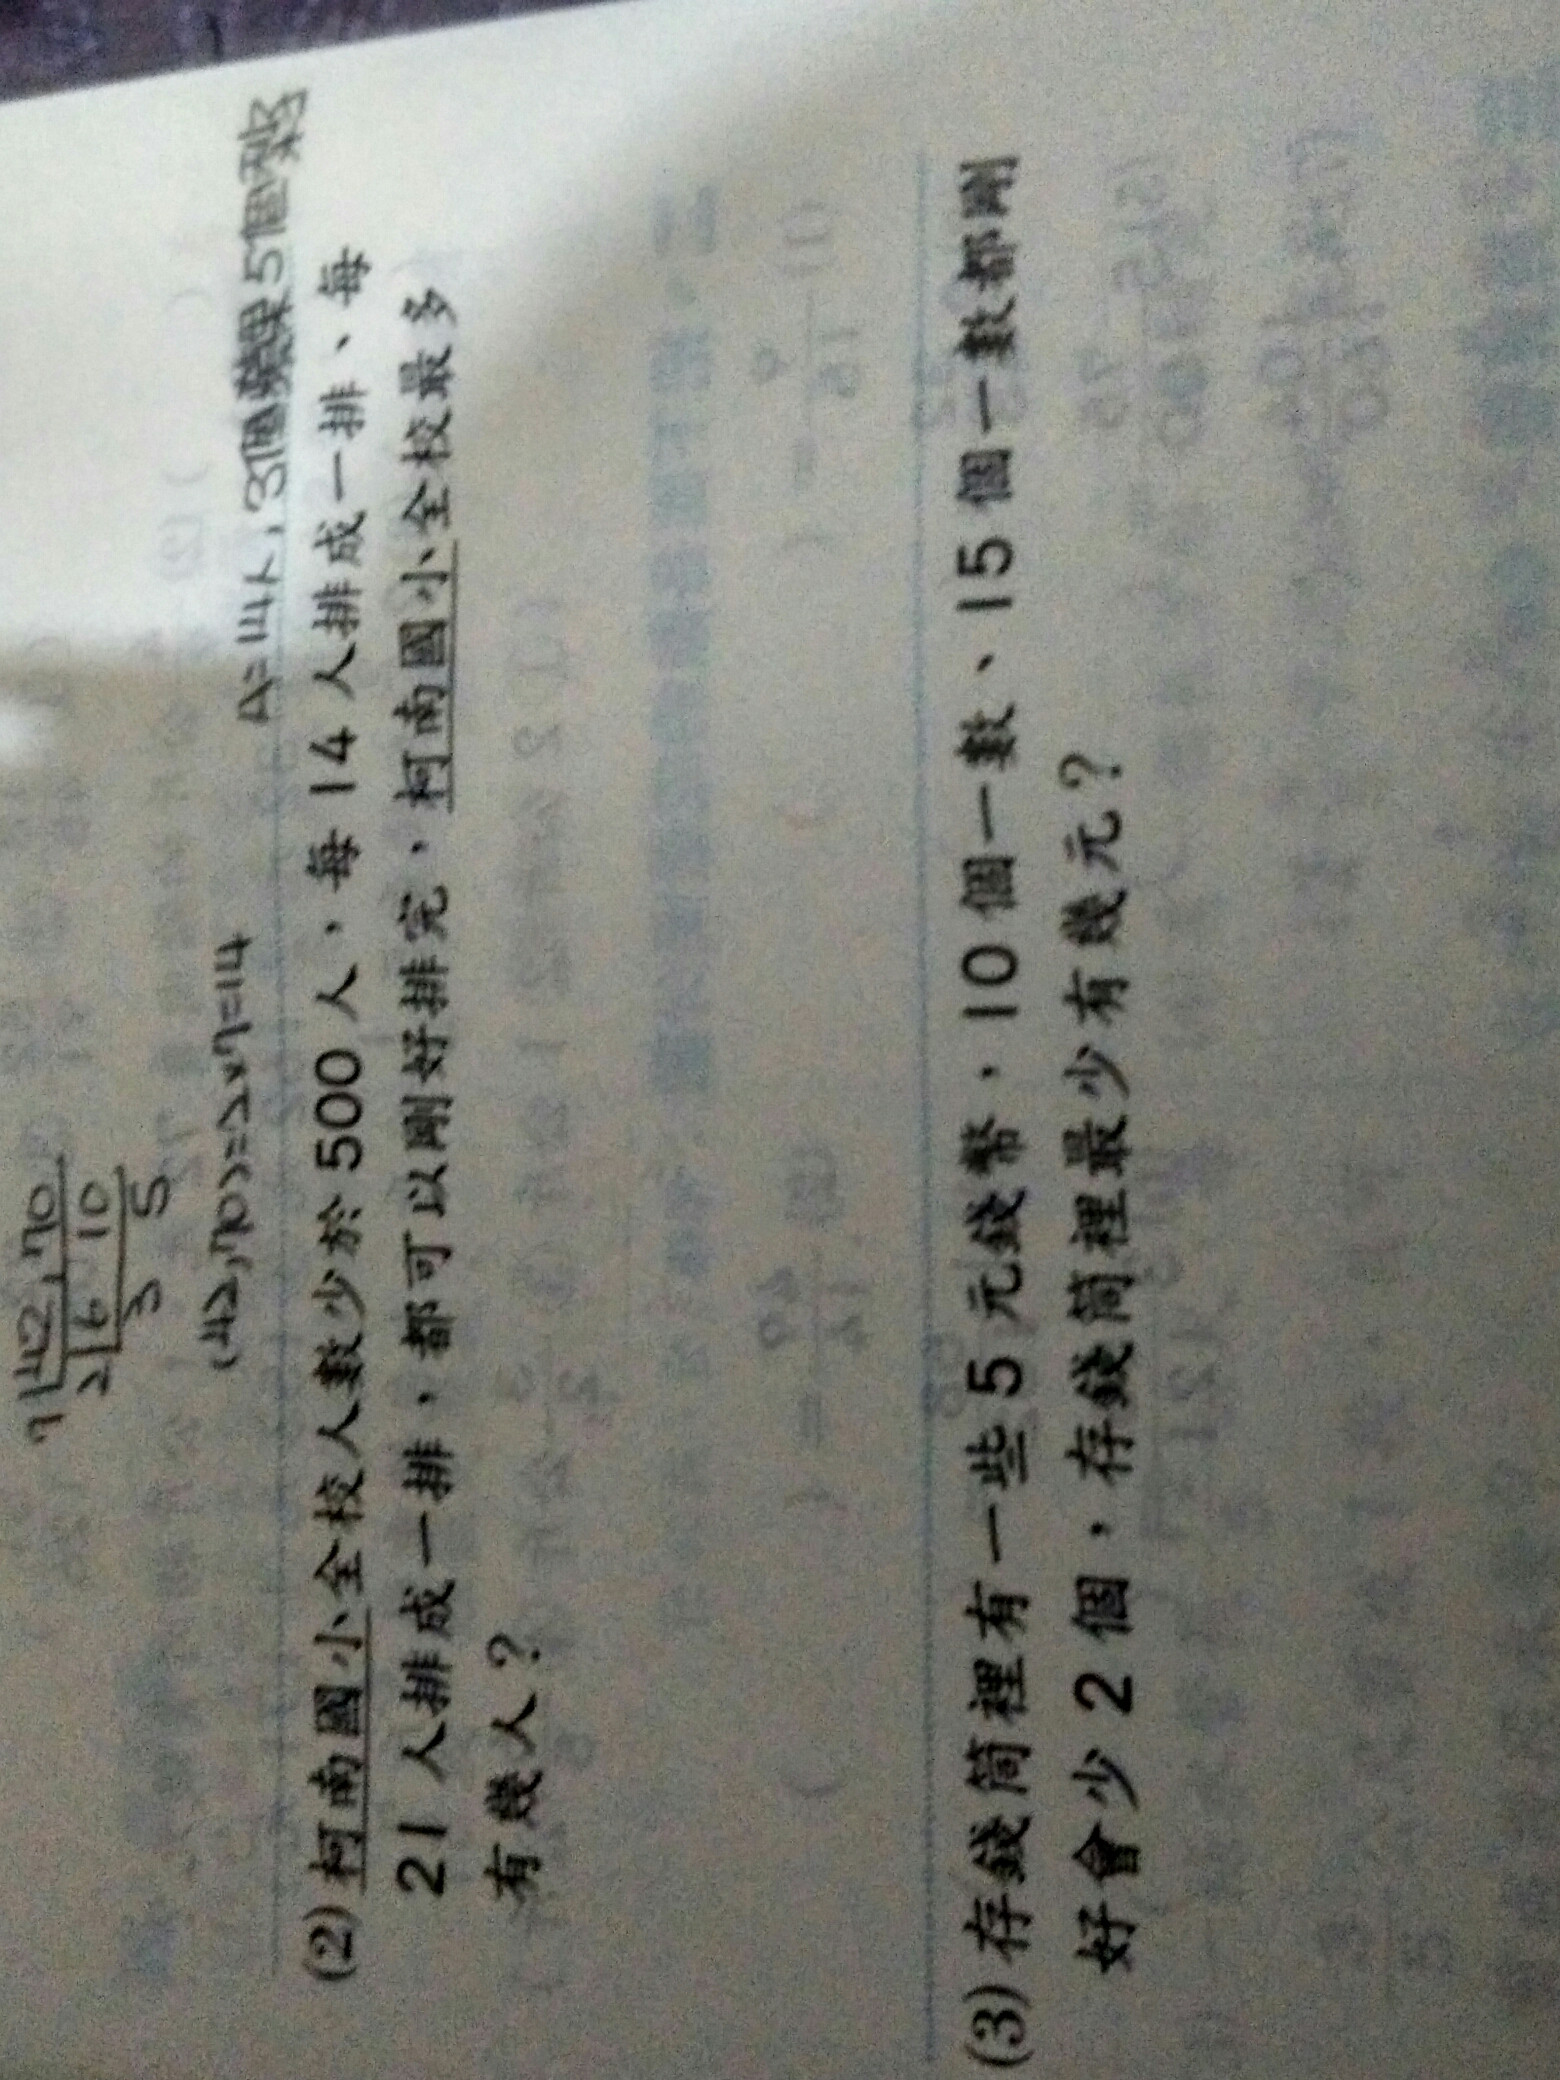 7 42,70
2 6 10
3 5
(42,70)=2×7=14
A=14人,3個蘋果5個梨
(2)柯南國小全校人數少於500人,每14人排成一排、每
21人排成一排,都可以剛好排完,柯南國小全校最多
有幾人?
(3)存錢筒裡有一些5元錢幣,10個一數、15個一數都剛
好會少2個,存錢筒裡最少有幾元?